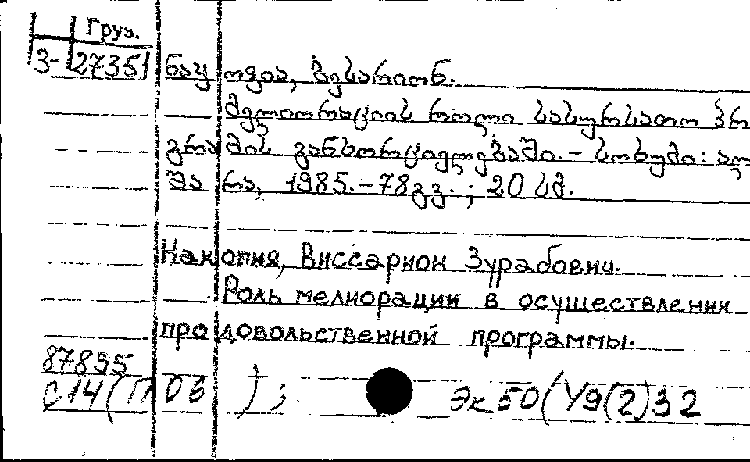 Груз.
3-27351
ნაყოფია, ბესარიონ.
მელიორაციის როლი სასურსათო პრო
გრამის განხორციელებაში. - სოხუმი: ალ
შარა, 1985. - 78გვ. ; 20 სმ.
Накопия, Виссарион Зурабович.
Роль мелиорации в осуществлении
продовольственной программы.
87895
С14(П06 ) ;
Эк50(У9(2)32